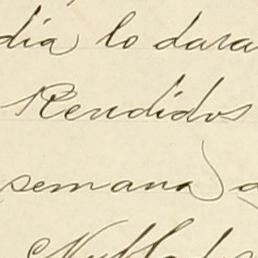 dia lo dara
Rendidos
semana